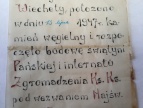 Wiechety, położono
w dniu 13 lipca 1947r. ka-
mień węgielny i rozpo-
częto budowę świątyni
Pańskiej i internatu
Zgromadzenia Ks. Ks.
pod wezwaniem Najśw.